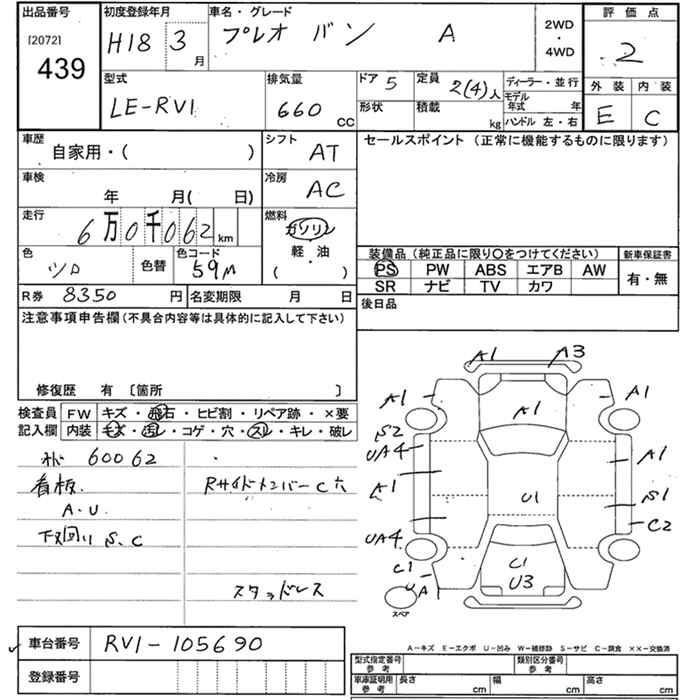 出品番号 初度登録年月 車名・グレード 2WD・4WD 評価点
[2072] 439 H18 3月 プレオ バン A 2
型式 排気量 ドア 5 定員 2(4)人 ディーラー・並行 外装 内装
LE-RV1 660cc 形状 積載 kg モデル年式 年 E C
ハンドル 左・右
車歴 自家用・( ) シフト AT セールスポイント (正常に機能するものに限ります)
車検 年 月( 日) 冷房 AC
走行 6万0千062km 燃料 ガソリン・軽油( )
色 シロ 色替 色コード 59M
装備品(純正品に限り○をつけてください) 新車保証書
PS PW ABS エアB AW 有・無
SR ナビ TV カワ
R券 8350円 名変期限 月 日 後日品
注意事項申告欄(不具合内容等は具体的に記入して下さい)
修復歴 有 〔箇所 〕
検査員 FW キズ・飛石・ヒビ割・リペア跡・×要
記入欄 内装 キズ・汚レ・コゲ・穴・スレ・キレ・破レ
60062
看板.
A.U
下回り S.C
RサイドメンバーC穴
スタッドレス
A1 A3
A1 A1 A1
S2
UA4 A1
A1 U1 S1
C2
UA4
C1 C1
UA1 U3
スペア
A-キズ E-エクボ U-凹み W-補修跡 S-サビ C-腐食 ××-交換済
車台番号 RV1-105690
登録番号
型式指定番号 参考 類別区分番号 参考
車庫証明用 参考 長さ cm 幅 cm 高さ cm